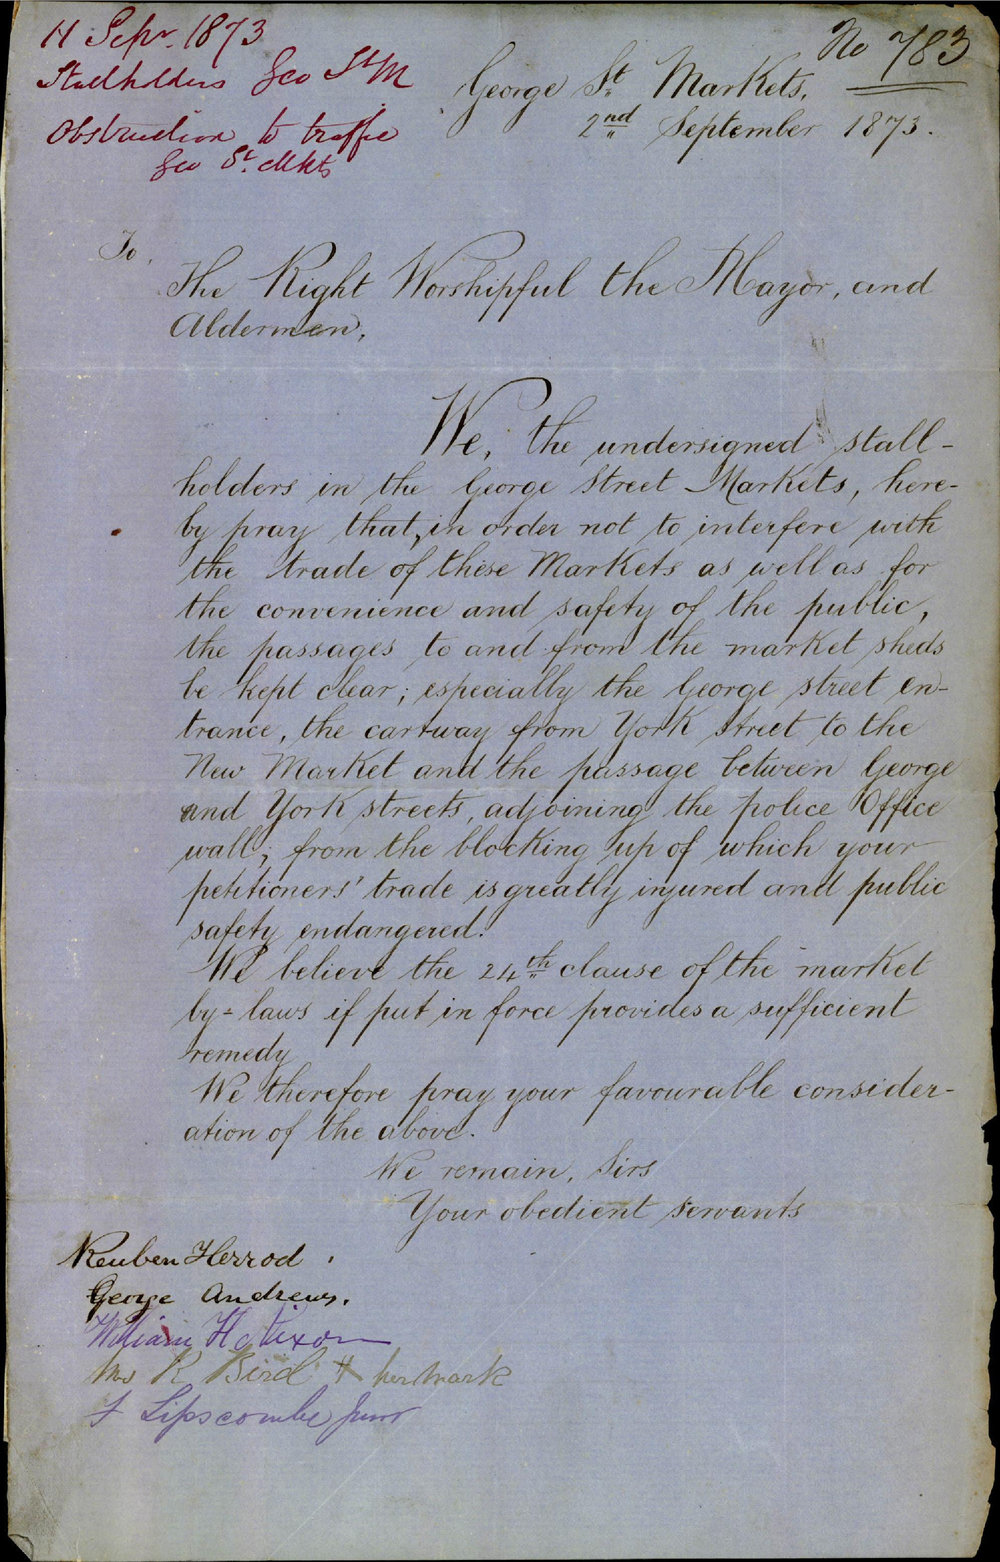 11 Sepr. 1873
Stallholders Geo St M
Obstruction to traffic
Geo St. Mkts
No 783
George St. Markets.
2nd September 1873.
To,
The Right Worshipful the Mayor, and
Aldermen.
We, the undersigned stall-
holders in the George Street Markets, here-
by pray that, in order not to interfere with
the trade of these Markets as well as for
the convenience and safety of the public,
the passages to and from the market sheds
be kept clear; especially the George street en-
trance, the cartway from York Street to the
New Market and the passage between George
and York streets, adjoining the police Office
wall; from the blocking up of which your
petitioners' trade is greatly injured and public
safety endangered.
We believe the 24th clause of the market
by-laws if put in force provides a sufficient
remedy
We therefore pray your favourable consider-
ation of the above.
We remain, Sirs
Your obedient servants
Reuben Herrod.
George Andrews.
William H
Mrs R Bird X her mark
F Lipscombe Junr